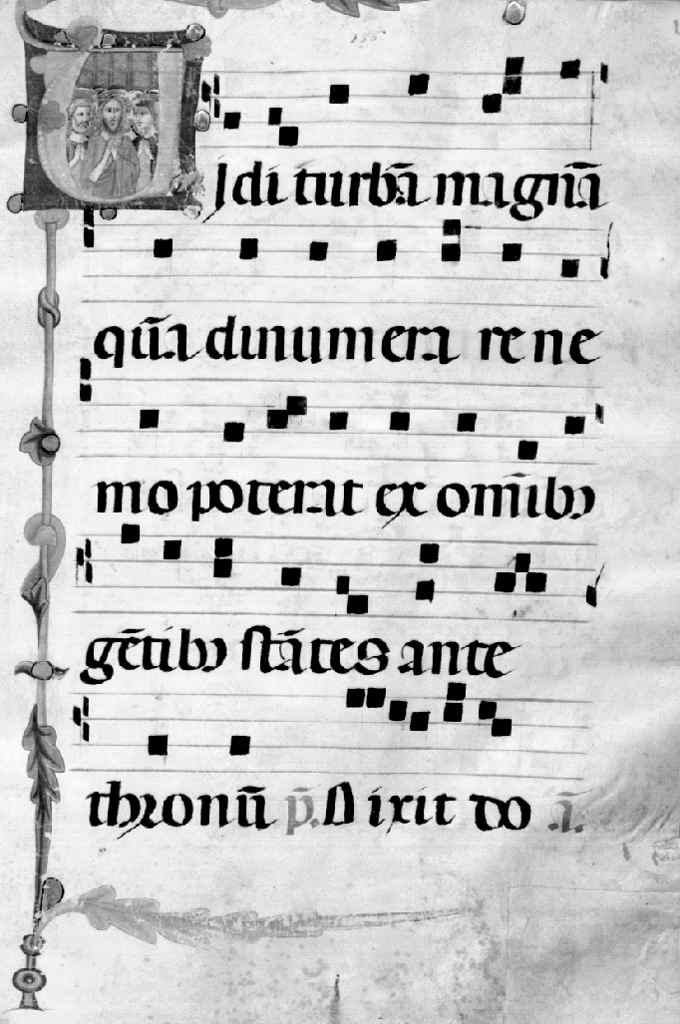 VJdi turbā magnā
quā dinumera re ne
mo poterat ex omībꝫ
gētibꝫ stātes ante
thronū p̄. Dixit do ā.